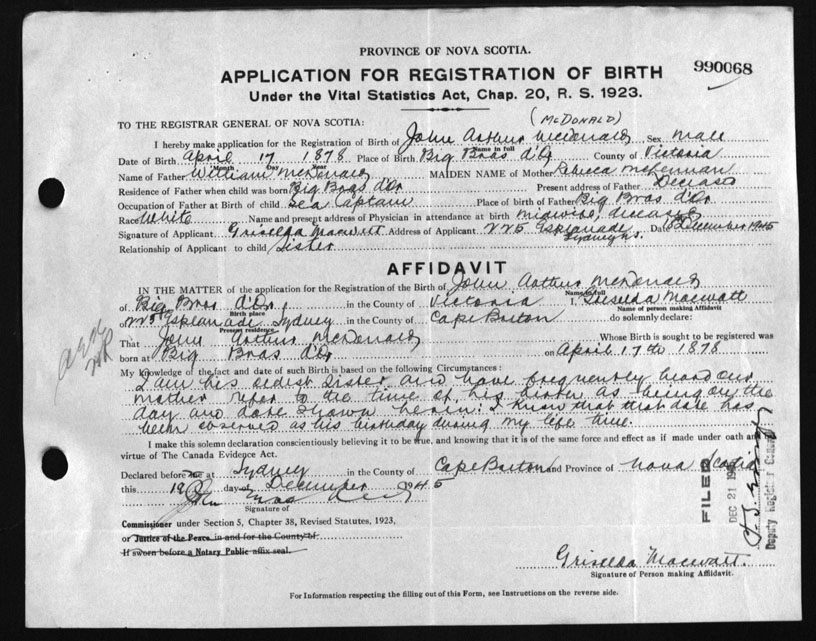 PROVINCE OF NOVA SCOTIA.
990068
APPLICATION FOR REGISTRATION OF BIRTH
Under the Vital Statistics Act, Chap. 20, R. S. 1923.
(McDONALD)
TO THE REGISTRAR GENERAL OF NOVA SCOTIA:
I hereby make application for the Registration of Birth of John Arthur McDonald Sex Male
Name in full
Date of Birth April 17 1878 Place of Birth Big Bras d'Or County of Victoria
Month Day Year
Name of Father William McDonald MAIDEN NAME of Mother Rebecca
Residence of Father when child was born Big Bras d'Or Present address of Father Deceased
Occupation of Father at Birth of child Sea Captain Place of birth of Father Big Bras d'Or
Race White Name and present address of Physician in attendance at birth midwife, deceased
Signature of Applicant Griselda Macwatt Address of Applicant 225 Esplanade Sydney N.S. Date December 1945
Relationship of Applicant to child Sister
AFFIDAVIT
IN THE MATTER of the application of the Registration of the Birth of John Arthur McDonald
Name in full
of Big Bras d'Or in the County of Victoria I, Griselda Macwatt
Birth place Name of person making Affidavit
of 225 Esplanade Sydney in the County of Cape Breton do solemnly declare:
Present residence
That John Arthur McDonald Whose Birth is sought to be registered was
born at Big Bras d'Or on April 17th 1878
My knowledge of the fact and date of such Birth is based on the following Circumstances:
I am his oldest sister and have frequently heard our
mother refer to the time of his birth as being on the
day and date shown herein. I know that that date has
been observed as his birthday during my life time.
I make this solemn declaration conscientiously believing it to be true, and knowing that it is of the same force and effect as if made under oath and
virtue of The Canada Evidence Act.
Declared before me at Sydney in the County of Cape Breton and Province of Nova Scotia
this 19 day of December 1945
Signature of
Commissioner under Section 5, Chapter 38, Revised Statutes, 1923,
or Justice of the Peace in and for the County of
If sworn before a Notary Public affix seal.
FILED
DEC 21
Deputy Registrar General
Griselda Macwatt
Signature of Person making Affidavit.
For Information respecting the filling out of this Form, see Instructions on the reverse side.